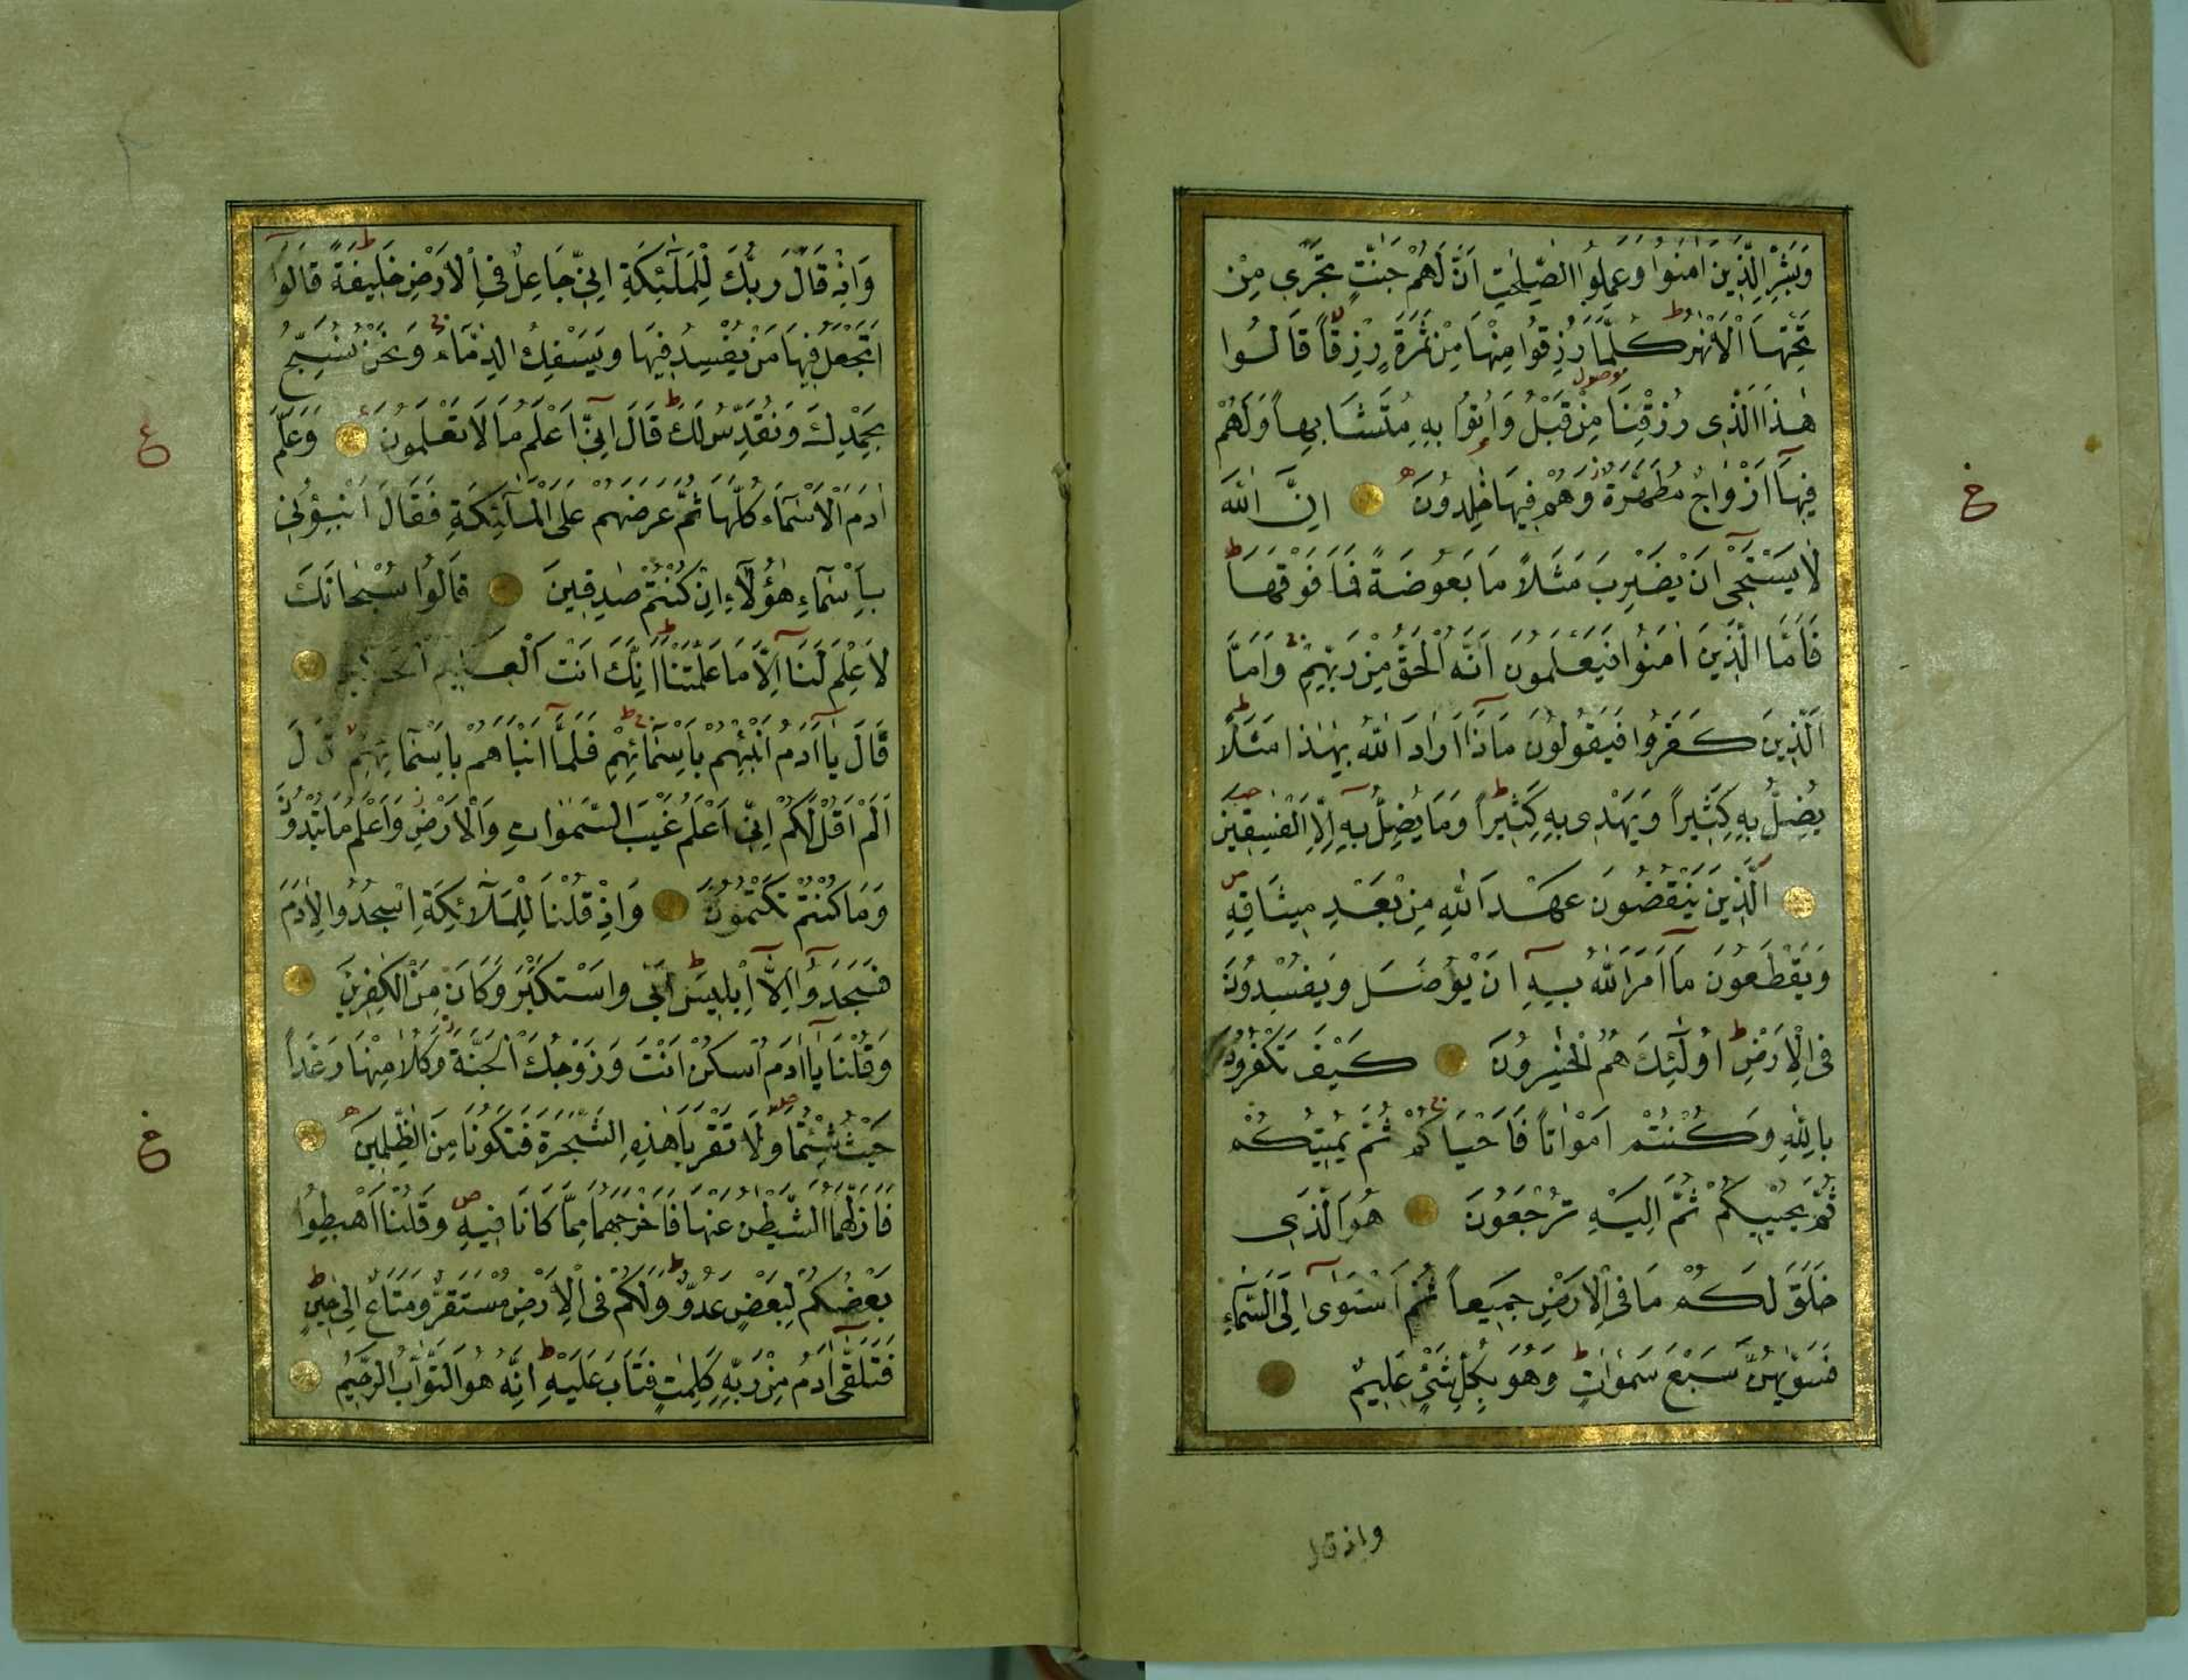 وَبَشِّرِ الَّذِينَ اٰمَنُوا وَعَمِلُوا الصّٰلِحٰتِ اَنَّ لَهُمْ جَنّٰتٍ تَجْرِي مِنْ
تَحْتِهَا الْاَنْهٰرُ كُلَّمَا رُزِقُوا مِنْهَا مِنْ ثَمَرَةٍ رِزْقًا قَالُوا
هٰذَا الَّذِي رُزِقْنَا مِنْ قَبْلُ وَاُتُوا بِهِ مُتَشَابِهًا وَلَهُمْ
فِيهَا اَزْوَاجٌ مُطَهَّرَةٌ وَهُمْ فِيهَا خٰلِدُونَ اِنَّ اللّٰهَ
لَا يَسْتَحْيِ اَنْ يَضْرِبَ مَثَلًا مَا بَعُوضَةً فَمَا فَوْقَهَا
فَاَمَّا الَّذِينَ اٰمَنُوا فَيَعْلَمُونَ اَنَّهُ الْحَقُّ مِنْ رَبِّهِمْ وَاَمَّا
الَّذِينَ كَفَرُوا فَيَقُولُونَ مَاذَا اَرَادَ اللّٰهُ بِهٰذَا مَثَلًا
يُضِلُّ بِهِ كَثِيرًا وَيَهْدِي بِهِ كَثِيرًا وَمَا يُضِلُّ بِهِ اِلَّا الْفٰسِقِينَ
الَّذِينَ يَنْقُضُونَ عَهْدَ اللّٰهِ مِنْ بَعْدِ مِيثَاقِهِ
وَيَقْطَعُونَ مَا اَمَرَ اللّٰهُ بِهِ اَنْ يُوصَلَ وَيُفْسِدُونَ
فِي الْاَرْضِ اُولٰئِكَ هُمُ الْخٰسِرُونَ كَيْفَ تَكْفُرُونَ
بِاللّٰهِ وَكُنْتُمْ اَمْوَاتًا فَاَحْيَاكُمْ ثُمَّ يُمِيتُكُمْ
ثُمَّ يُحْيِيكُمْ ثُمَّ اِلَيْهِ تُرْجَعُونَ هُوَ الَّذِي
خَلَقَ لَكُمْ مَا فِي الْاَرْضِ جَمِيعًا ثُمَّ اسْتَوٰى اِلَى السَّمَاءِ
فَسَوّٰيهُنَّ سَبْعَ سَمٰوَاتٍ وَهُوَ بِكُلِّ شَيْءٍ عَلِيمٌ
واذ قال
وَاِذْ قَالَ رَبُّكَ لِلْمَلٰئِكَةِ اِنِّي جَاعِلٌ فِي الْاَرْضِ خَلِيفَةً قَالُوا
اَتَجْعَلُ فِيهَا مَنْ يُفْسِدُ فِيهَا وَيَسْفِكُ الدِّمَاءَ وَنَحْنُ نُسَبِّحُ
بِحَمْدِكَ وَنُقَدِّسُ لَكَ قَالَ اِنِّي اَعْلَمُ مَا لَا تَعْلَمُونَ وَعَلَّمَ
اٰدَمَ الْاَسْمَاءَ كُلَّهَا ثُمَّ عَرَضَهُمْ عَلَى الْمَلٰئِكَةِ فَقَالَ اَنْبِؤُنِي
بِاَسْمَاءِ هٰؤُلَاءِ اِنْ كُنْتُمْ صٰدِقِينَ قَالُوا سُبْحَانَكَ
لَا عِلْمَ لَنَا اِلَّا مَا عَلَّمْتَنَا اِنَّكَ اَنْتَ الْعَلِيمُ الْحَكِيمُ
قَالَ يَا اٰدَمُ اَنْبِئْهُمْ بِاَسْمَائِهِمْ فَلَمَّا اَنْبَاَهُمْ بِاَسْمَائِهِمْ قَالَ
اَلَمْ اَقُلْ لَكُمْ اِنِّي اَعْلَمُ غَيْبَ السَّمٰوَاتِ وَالْاَرْضِ وَاَعْلَمُ مَا تُبْدُونَ
وَمَا كُنْتُمْ تَكْتُمُونَ وَاِذْ قُلْنَا لِلْمَلَائِكَةِ اسْجُدُوا لِاٰدَمَ
فَسَجَدُوا اِلَّا اِبْلِيسَ اَبٰى وَاسْتَكْبَرَ وَكَانَ مِنَ الْكٰفِرِينَ
وَقُلْنَا يَا اٰدَمُ اسْكُنْ اَنْتَ وَزَوْجُكَ الْجَنَّةَ وَكُلَا مِنْهَا رَغَدًا
حَيْثُ شِئْتُمَا وَلَا تَقْرَبَا هٰذِهِ الشَّجَرَةَ فَتَكُونَا مِنَ الظّٰلِمِينَ
فَاَزَلَّهُمَا الشَّيْطٰنُ عَنْهَا فَاَخْرَجَهُمَا مِمَّا كَانَا فِيهِ وَقُلْنَا اهْبِطُوا
بَعْضُكُمْ لِبَعْضٍ عَدُوٌّ وَلَكُمْ فِي الْاَرْضِ مُسْتَقَرٌّ وَمَتَاعٌ اِلٰى حِينٍ
فَتَلَقّٰى اٰدَمُ مِنْ رَبِّهِ كَلِمٰتٍ فَتَابَ عَلَيْهِ اِنَّهُ هُوَ التَّوَّابُ الرَّحِيمُ